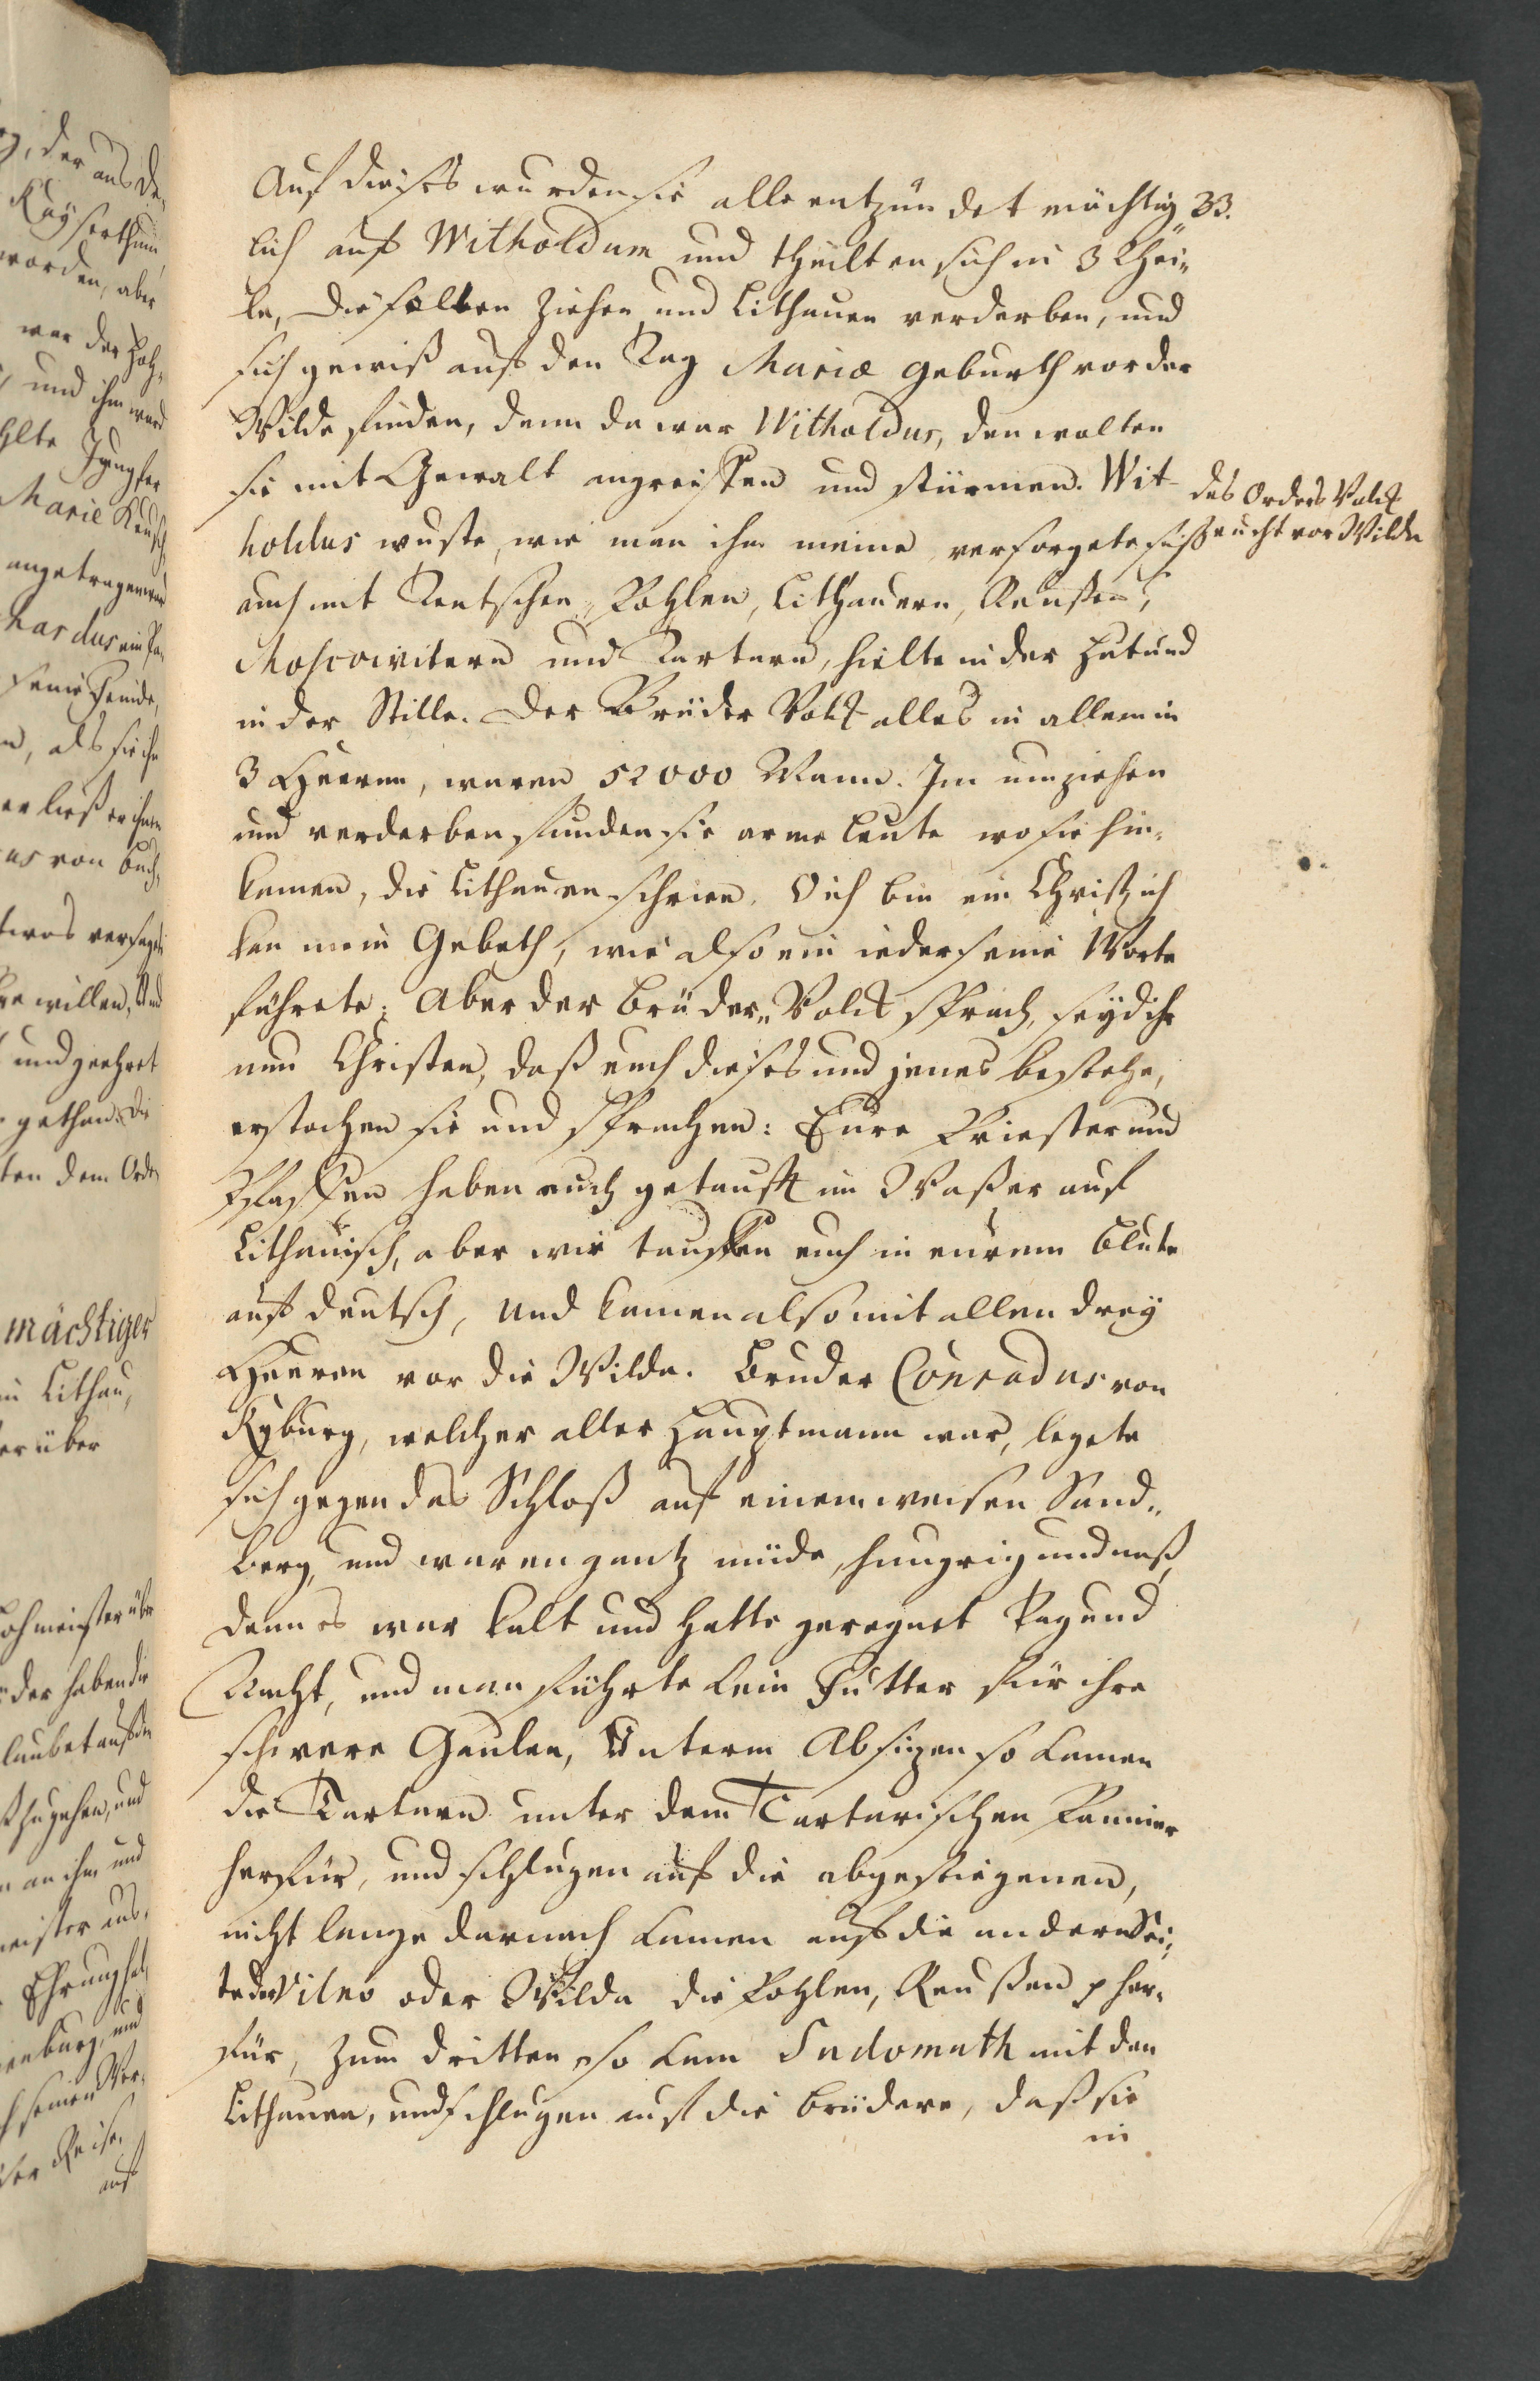 Auf dieses wurden sie alle entzündet mächtig- 33.
lich auf Witholdum und theilten sich in 3 Thei-
le, die solten ziehen und Lithauen verderben, und
sich gewiß auf den Tag Mariæ Geburth vor der
Wilde finden, denn da war Witholdus, den wolten
sie mit Gewalt angreiffen und stürmen. Wit-
holdus wuste, wie man ihn meine, versorgete sich
auch mit Teutschen, Pohlen, Lithauern, Reußen,
Moscowitern und Tartern, hielte in der Hut und
in der Stille. Der Brüder Volck alles in allem in
3 Heeren, waren 52000 Mann. Im umziehen
und verderben funden sie arme Leute wo sie hin-
kamen, die Lithauen schrien, O ich bin ein Christ, ich
kan mein Gebeth, wie also ein ieder seine Worte
führete; Aber der Brüder-Volck sprach, seyd ihr
nun Christen, daß euch dieses und jenes bestehe,
erstachen sie und sprachen: Eure Priester und
Pfaffen haben euch getaufft im Waßer auf
Lithauisch, aber wir tauffen euch in eurem Blute
auf deutsch, und kamen also mit allen drey
Heeren vor die Wilda. Bruder Conradus von
Kyburg, welcher aller Hauptmann war, legete
sich gegen das Schloß auf einem weisen Sand-
berg, und waren gantz müde, hungrig und naß,
denn es war kalt und hatte geregnet Tag und
Nacht, und man führte kein Futter für ihre
schwere Gaulen, Unterm Absitzen so kamen
die Tartarn unter dem Tartarischen Pannier
herfür, und schlugen auf die abgestiegenen,
nicht lange darnach kamen auf die andere Sei-
te der Vilno oder Wilda die Pohlen, Reußen p her-
für, zum dritten so kam Sudomuth mit den
Lithauen, und schlugen auf die Brüdere, daß sie
in
des Ordens Volck
raucht vor Wilda